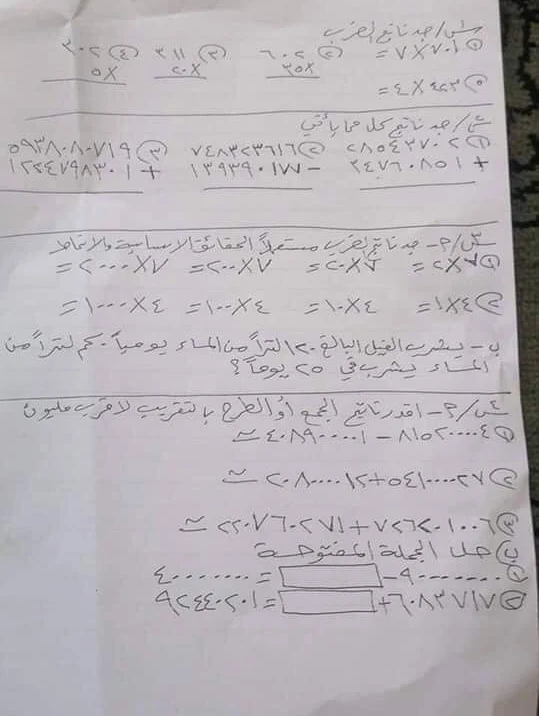 س١/ جد ناتج الضرب
① ٧٠١ × ٧ = ② ٦٠٢ ③ ٣١١ ④ ٣٠٢
× ٣٥ × ٢٠ × ٥
⑤ ٤٢٣ × ٤ =
س٢/ جد ناتج كل مما يأتي
① ٢٨٥٤٣٧٠٢ ② ٧٤٨٣٢٣٦١٦ ③ ٥٩٣٨٠٨٠٧١٩
+ ٣٤٧٦٠٨٥١ − ١٣٩٣٩٠١٧٧ + ١٢٣٤٧٩٨٣٠١
س٣/ أ- جد ناتج الضرب مستعملاً الحقائق الاساسية والانماط
① ٧×٢ = ٧×٢٠ = ٧×٢٠٠ = ٧×٢٠٠٠ =
② ٤×١ = ٤×١٠ = ٤×١٠٠ = ٤×١٠٠٠ =
ب- يشرب الفيل البالغ ١٢٠ لتراً من الماء يومياً. كم لتراً من
الماء يشرب في ٢٥ يوماً؟
س٤/ أ- اقدر ناتج الجمع أو الطرح بالتقريب لاقرب مليون
① ٨١٥٢٠٠٠٠٤ − ٤٠٨٩٠٠٠٠١ ≈
② ٥٤١٠٠٠٠٢٧ + ٢٠٨٠٠٠٠١٢ ≈
③ ٧٢٦٢٠١٠٠٦ + ٢٢٠٧٦٠٢٧١ ≈
ب) حل الجملة المفتوحة
① ٩٠٠٠٠٠٠٠ − = ٤٠٠٠٠٠٠٠
② ٦٠٨٣٧١٧ + = ٩٢٤٤٠٢٠١